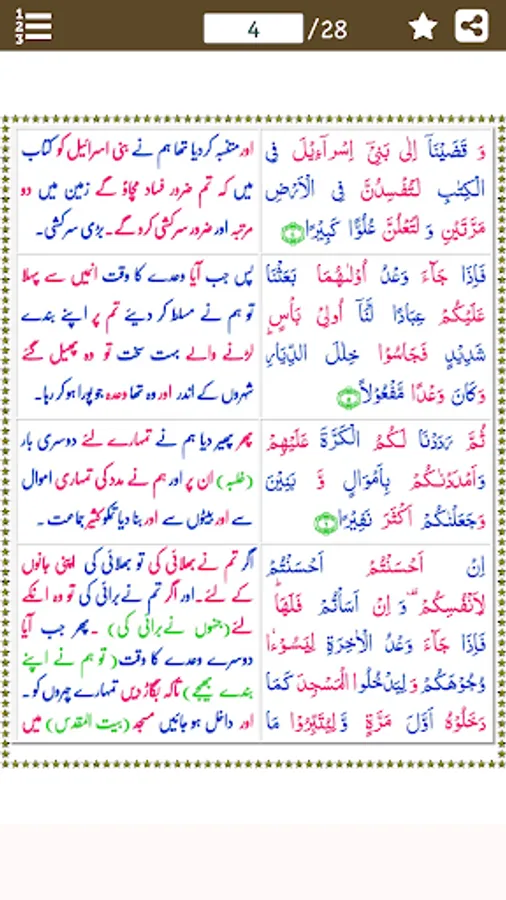 1
2
3
4 /28
وَ قَضَيْنَآ اِلٰى بَنِىْٓ اِسْرَآءِيْلَ فِى
الْكِتٰبِ لَتُفْسِدُنَّ فِى الْاَرْضِ
مَرَّتَيْنِ وَ لَتَعْلُنَّ عُلُوًّا كَبِيْرًا ۝۴
اور متنبہ کردیا تھا ہم نے بنی اسرائیل کو کتاب
میں کہ تم ضرور فساد مچاؤ گے زمین میں دو
مرتبہ اور ضرور سرکشی کرو گے۔ بڑی سرکشی۔
فَاِذَا جَآءَ وَعْدُ اُوْلٰىهُمَا بَعَثْنَا
عَلَيْكُمْ عِبَادًا لَّنَآ اُولِىْ بَاْسٍ
شَدِيْدٍ فَجَاسُوْا خِلٰلَ الدِّيَارِ
وَكَانَ وَعْدًا مَّفْعُوْلًا ۝۵
پس جب آیا وعدے کا وقت انہیں سے پہلا
تو ہم نے مسلط کر دیئے تم پر اپنے بندے
لڑنے والے بہت سخت تو وہ پھیل گئے
شہروں کے اندر اور وہ تھا وعدہ جو پورا ہو کر رہا۔
ثُمَّ رَدَدْنَا لَكُمُ الْكَرَّةَ عَلَيْهِمْ
وَاَمْدَدْنٰكُمْ بِاَمْوَالٍ وَّ بَنِيْنَ
وَجَعَلْنٰكُمْ اَكْثَرَ نَفِيْرًا ۝۶
پھر پھیر دیا ہم نے تمہارے لئے دوسری بار
(غلبہ) ان پر اور ہم نے مدد کی تمہاری اموال
سے اور بیٹوں سے اور بنا دیا تمکو کثیر جماعت ۔
اِنْ اَحْسَنْتُمْ اَحْسَنْتُمْ
لِاَنْفُسِكُمْ ۫ وَ اِنْ اَسَاْتُمْ فَلَهَا ؕ
فَاِذَا جَآءَ وَعْدُ الْاٰخِرَةِ لِيَسُوْٓءٗا
وُجُوْهَكُمْ وَ لِيَدْخُلُوا الْمَسْجِدَ كَمَا
دَخَلُوْهُ اَوَّلَ مَرَّةٍ وَّ لِيُتَبِّرُوْا مَا
اگر تم نے بھلائی کی تو بھلائی کی اپنی جانوں
کے لئے۔ اور اگر تم نے برائی کی تو وہ انکے
لئے (جنہوں نے برائی کی) ۔ پھر جب آیا
دوسرے وعدے کا وقت (تو ہم نے اپنے
بندے بھیجے) تاکہ بگاڑ دیں تمہارے چہروں کو۔
اور داخل ہو جائیں مسجد (بیت المقدس) میں